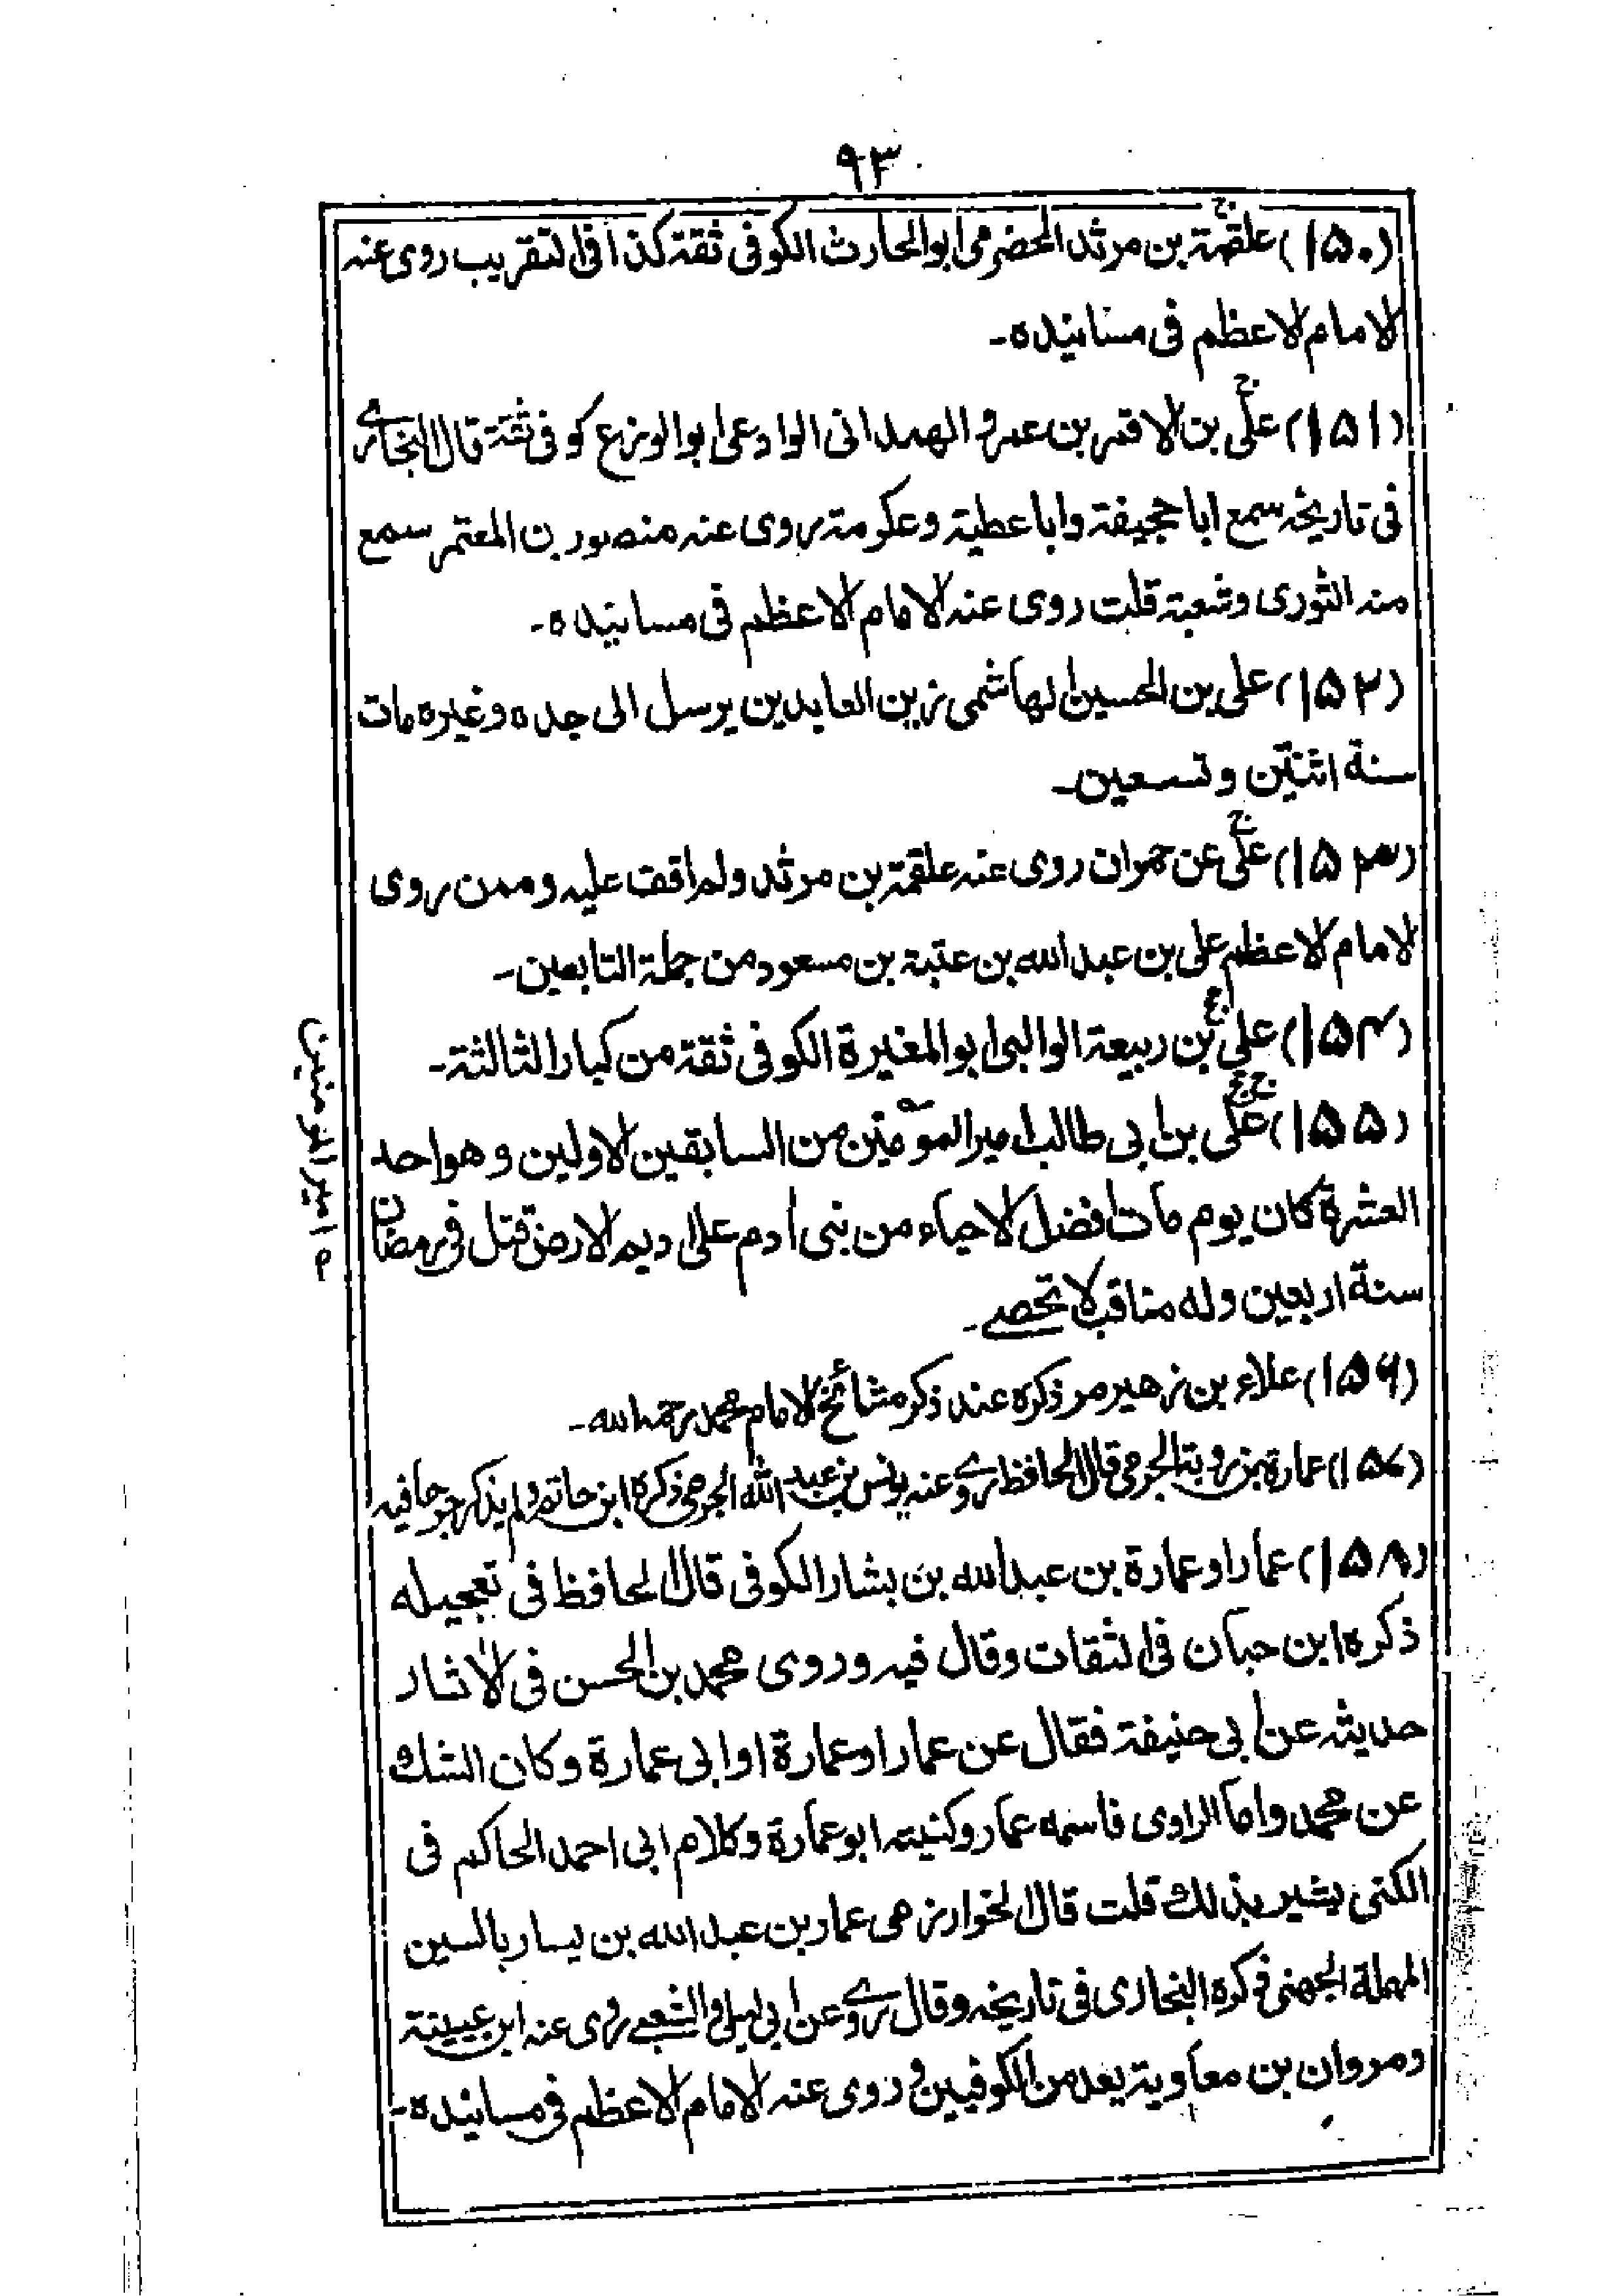 ۹۳
(۱۵۰) علقمة بن مرثد الحضرمی ابو الحارث الکوفی ثقة کذا فی التقریب روی عنه
الامام الاعظم فی مسانیده۔
(۱۵۱) علی بن الاقمر بن عمرو الهمدانی الوادعی ابو الوزع کوفی ثقة قال البخاری
فی تاریخه سمع ابا جحیفة وابا عطیة وعکرمة روی عنه منصور بن المعتمر سمع
منه الثوری وشعبة قلت روی عنه الامام الاعظم فی مسانیده۔
(۱۵۲) علی بن الحسین الهاشمی زین العابدین یرسل الی جده وغیره مات
سنة اثنتین وتسعین۔
(۱۵۳) علی عن حمران روی عنه علقمة بن مرثد ولم اقف علیه وممن روی
الامام الاعظم علی بن عبد الله بن عتبة بن مسعود من جملة التابعین۔
(۱۵۴) علی بن ربیعة الوالبی ابو المغیرة الکوفی ثقة من کبار الثالثة۔
(۱۵۵) علی بن ابی طالب امیر المؤمنین من السابقین الاولین وهو احد
العشرة کان یوم مات افضل الاحیاء من بنی ادم علی ادیم الارض قتل فی رمضان
سنة اربعین وله مناقب لا تحصے۔
(۱۵۶) علاء بن زهیر مر ذکره عند ذکر مشائخ الامام محمد رحمه الله۔
(۱۵۷) عمارة بن رویبة الجرمی قال الحافظ روے عنه یونس بن عبد الله الجرمی ذکره ابن حاتم ولم یذکر جرحا فیه
(۱۵۸) عمار او عمارة بن عبد الله بن بشار الکوفی قال الحافظ فی تعجیله
ذکره ابن حبان فی الثقات وقال فیه وروی محمد بن الحسن فی الاثار
حدیثه عن ابی حنیفة فقال عن عمار او عمارة او ابی عمارة وکان الشك
عن محمد واما الراوی فاسمه عمار وکنیته ابو عمارة وکلام ابی احمد الحاکم فی
الکنی یشیر بذلك قلت قال الخوارزمی عمار بن عبد الله بن یسار بالسین
المهملة الجهنی ذکره البخاری فی تاریخه وقال روے عن ابی لیلی والشعبے روی عنه ابن عیینة
ومروان بن معاویة یعد من الکوفیین وروی عنه الامام الاعظم فی مسانیده۔
؎ امیر المومنین